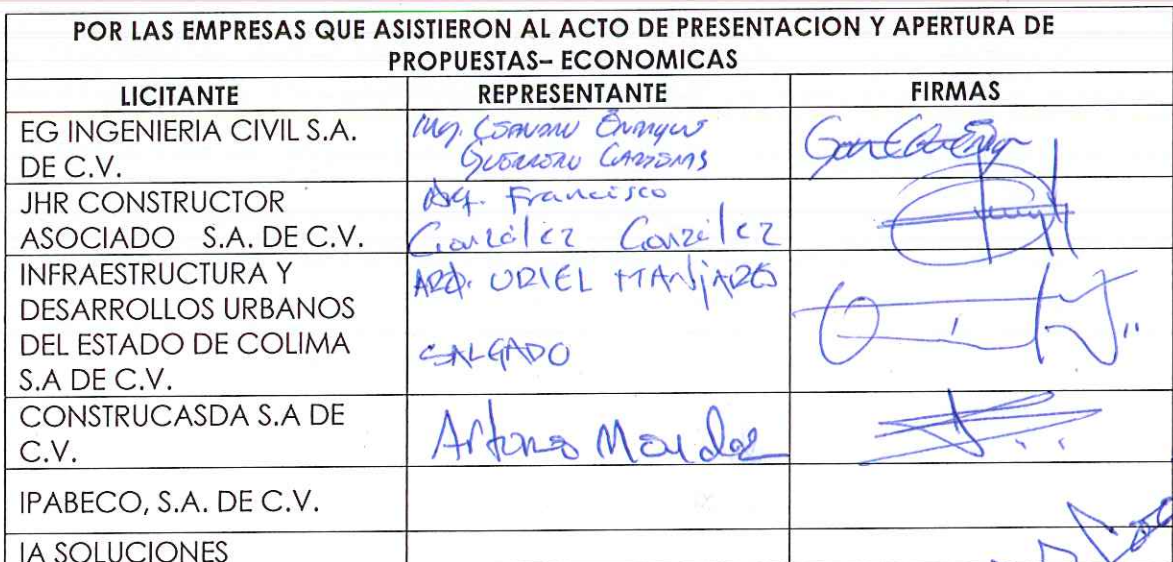 POR LAS EMPRESAS QUE ASISTIERON AL ACTO DE PRESENTACION Y APERTURA DE
PROPUESTAS– ECONOMICAS
LICITANTE REPRESENTANTE FIRMAS
EG INGENIERIA CIVIL S.A.
DE C.V.
Ing.
JHR CONSTRUCTOR
ASOCIADO S.A. DE C.V.
Arq. Francisco
González González
INFRAESTRUCTURA Y
DESARROLLOS URBANOS
DEL ESTADO DE COLIMA
S.A DE C.V.
ARQ. URIEL MANJARES
SALGADO
CONSTRUCASDA S.A DE
C.V.
Arturo
IPABECO, S.A. DE C.V.
IA SOLUCIONES